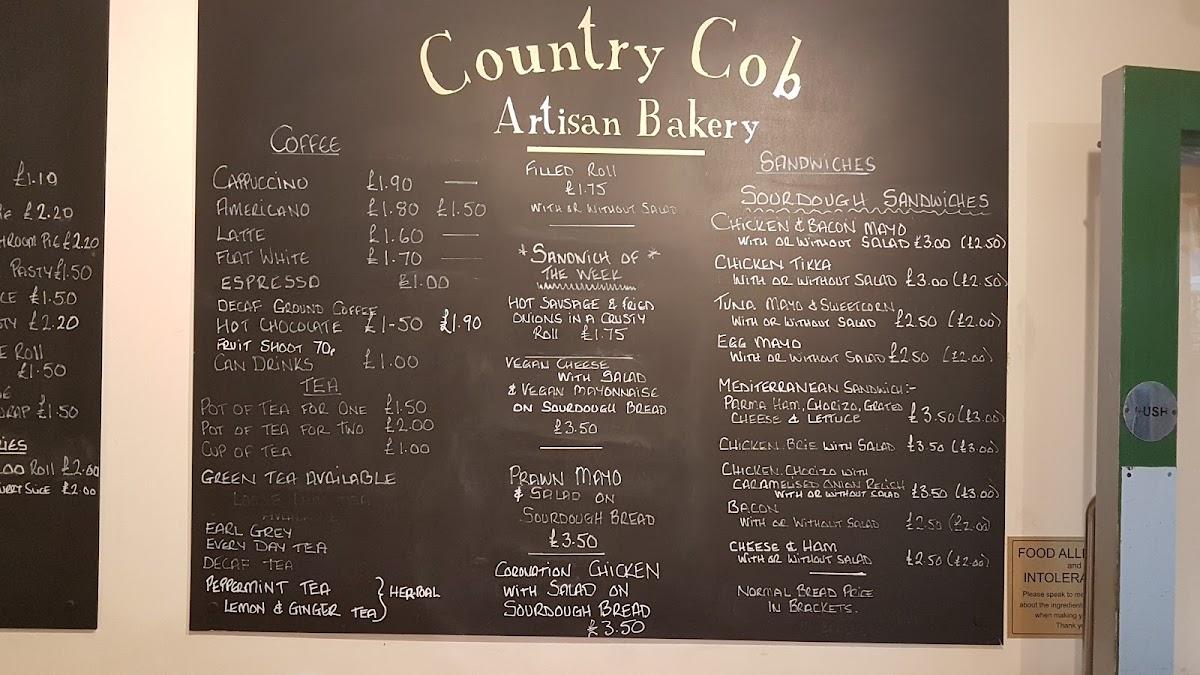 £1.10
£2.20
PIE £2.20
PASTY £1.50
£1.50
£2.20
ROLL
£1.50
£1.50
ROLL £2.00
SLICE £2.00
Country Cob
Artisan Bakery
COFFEE
CAPPUCCINO £1.90 —
AMERICANO £1.80 £1.50
LATTE £1.60 —
FLAT WHITE £1.70 —
ESPRESSO £1.00
DECAF GROUND COFFEE
HOT CHOCOLATE £1-50 £1.90
FRUIT SHOOT 70p
CAN DRINKS £1.00
TEA
POT OF TEA FOR ONE £1.50
POT OF TEA FOR TWO £2.00
CUP OF TEA £1.00
GREEN TEA AVAILABLE
EARL GREY
EVERY DAY TEA
DECAF TEA
PEPPERMINT TEA
LEMON & GINGER TEA } HERBAL
FILLED ROLL
£1.75
WITH OR WITHOUT SALAD
*SANDWICH OF *
THE WEEK
HOT SAUSAGE & FRIED
ONIONS IN A CRUSTY
ROLL £1.75
VEGAN CHEESE
WITH SALAD
& VEGAN MAYONNAISE
ON SOURDOUGH BREAD
£3.50
PRAWN MAYO
& SALAD ON
SOURDOUGH BREAD
£3.50
CORONATION CHICKEN
WITH SALAD ON
SOURDOUGH BREAD
£3.50
SANDWICHES
SOURDOUGH SANDWICHES
CHICKEN & BACON MAYO
WITH OR WITHOUT SALAD £3.00 (£2.50)
CHICKEN TIKKA
WITH OR WITHOUT SALAD £3.00 (£2.50)
TUNA MAYO & SWEETCORN
WITH OR WITHOUT SALAD £2.50 (£2.00)
EGG MAYO
WITH OR WITHOUT SALAD £2.50 (£2.00)
MEDITERRANEAN SANDWICH:-
PARMA HAM, CHORIZO, GRATED
CHEESE & LETTUCE £3.50 (£3.00)
CHICKEN. BRIE WITH SALAD £3.50 (£3.00)
CHICKEN. CHORIZO WITH
CARAMELISED ONION RELISH
WITH OR WITHOUT SALAD £3.50 (£3.00)
BACON
WITH OR WITHOUT SALAD £2.50 (£2.00)
CHEESE & HAM
WITH OR WITHOUT SALAD £2.50 (£2.00)
NORMAL BREAD PRICE
IN BRACKETS.
PUSH
FOOD ALL
and
INTOLERA
Please speak to
about the ingredient
when making
Thank